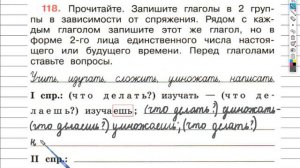 118. Прочитайте. Запишите глаголы в 2 груп-
пы в зависимости от спряжения. Рядом с каж-
дым глаголом запишите этот же глагол, но в
форме 2-го лица единственного числа настоя-
щего или будущего времени. Перед глаголами
ставьте вопросы.
Учить, изучать, сложить, умножать, написать.
I спр.: (что делать?) изучать — (что де-
лаешь?) изучаешь; (что делать?) умножать-
(что делаешь?) умножаешь; (что делать?)
II спр.: